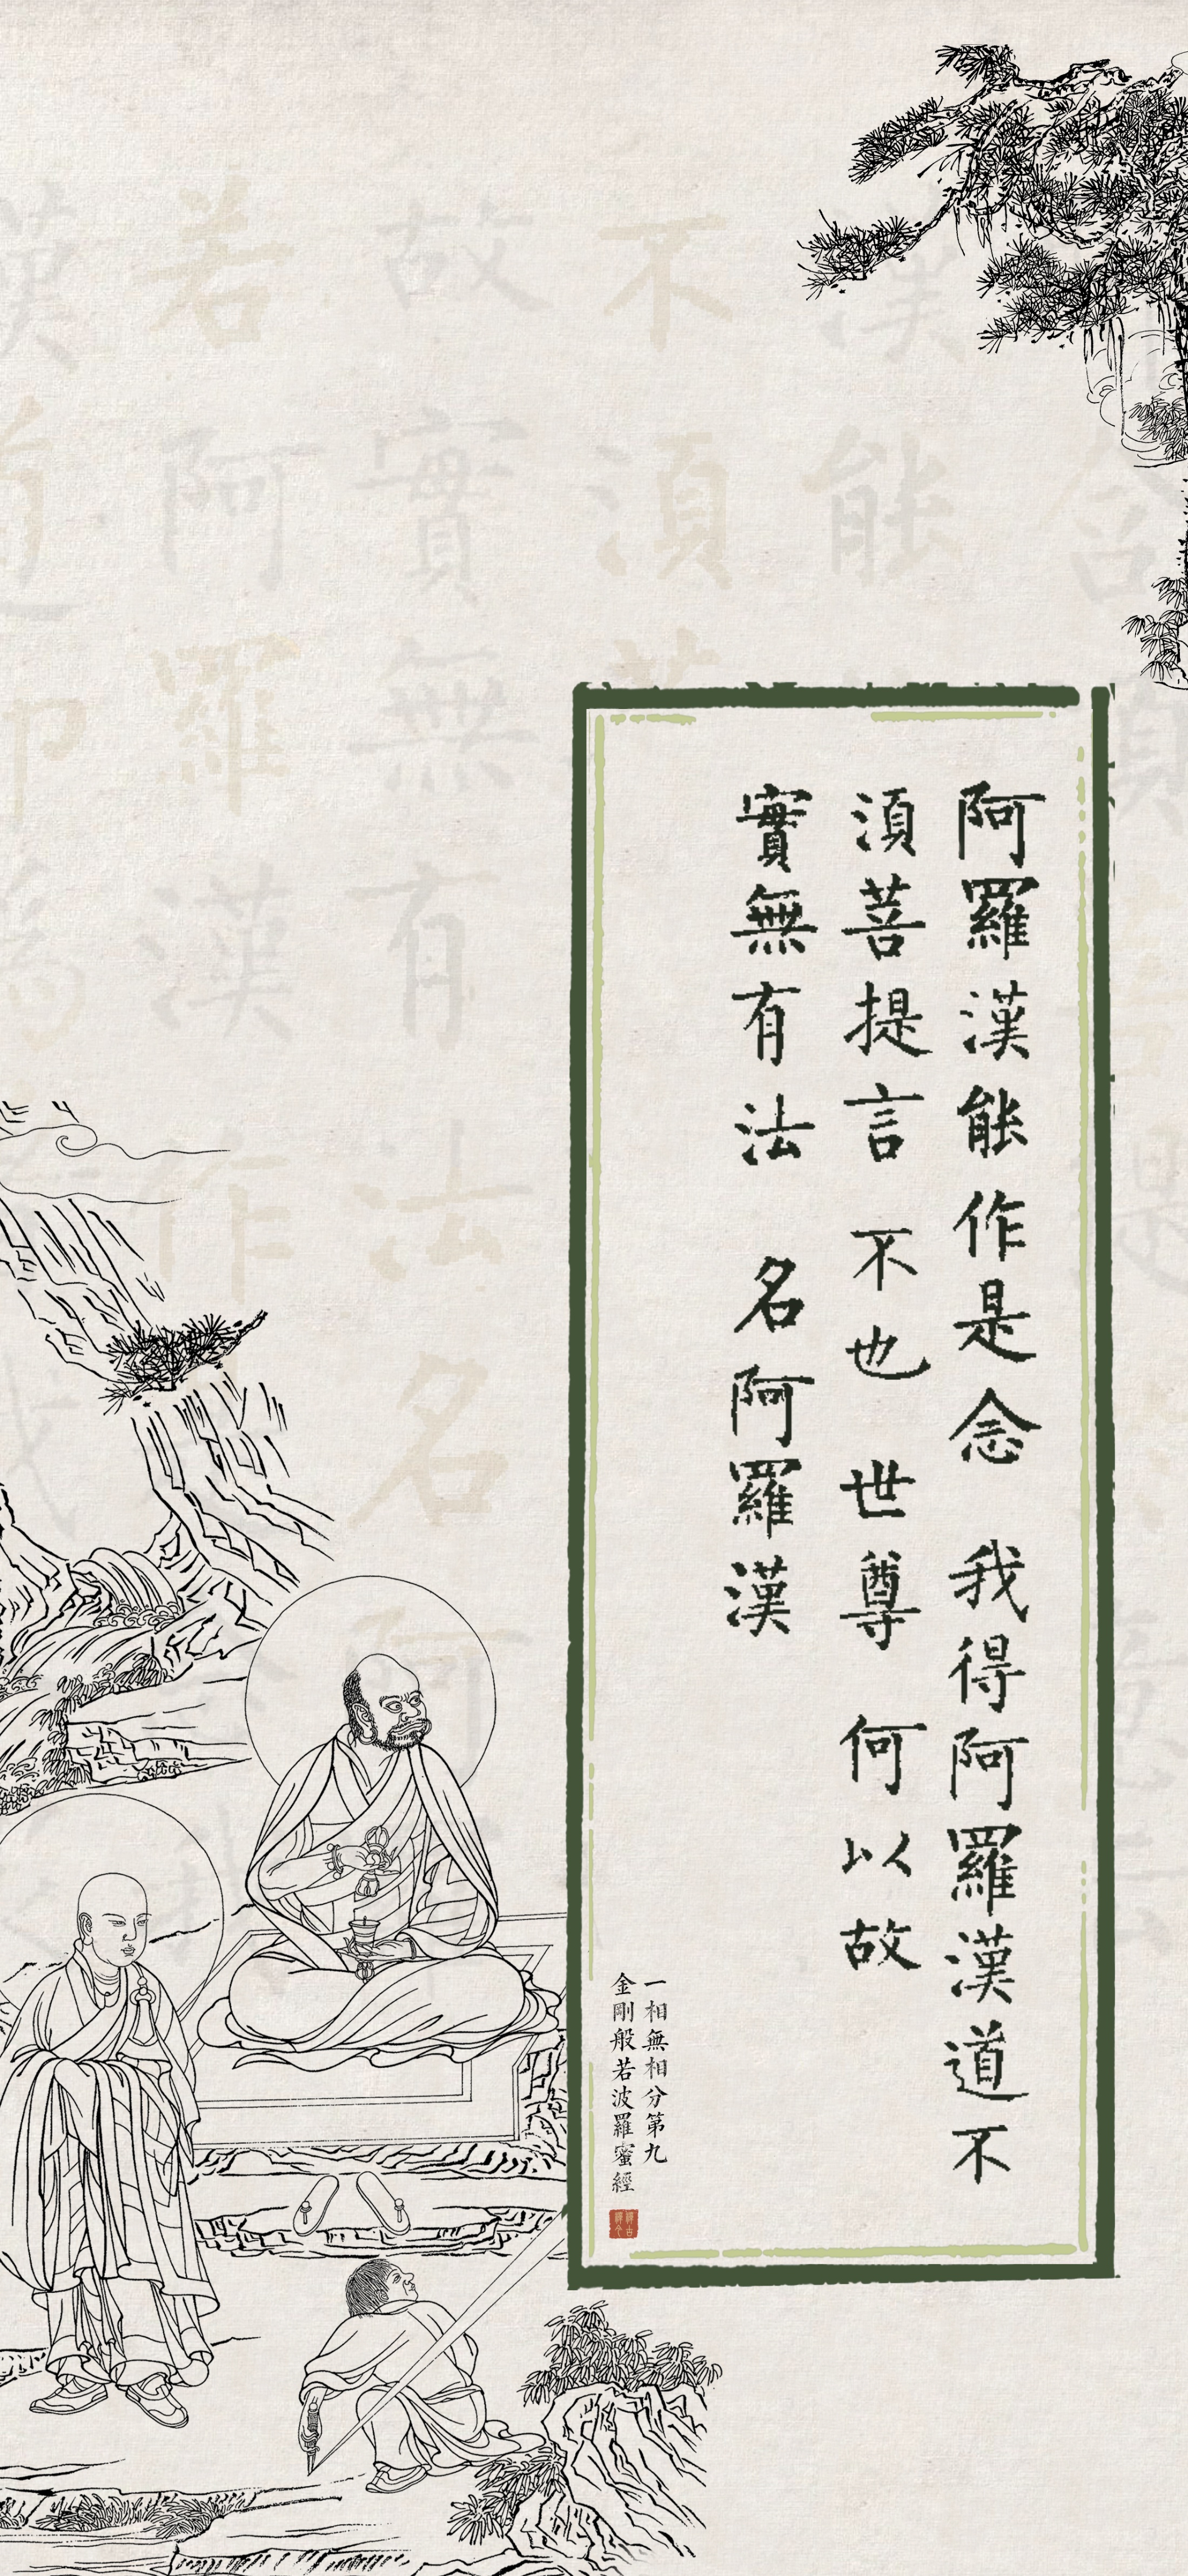 阿羅漢能作是念 我得阿羅漢道不
須菩提言 不也 世尊 何以故
實無有法 名阿羅漢
一相無相分第九
金剛般若波羅蜜經